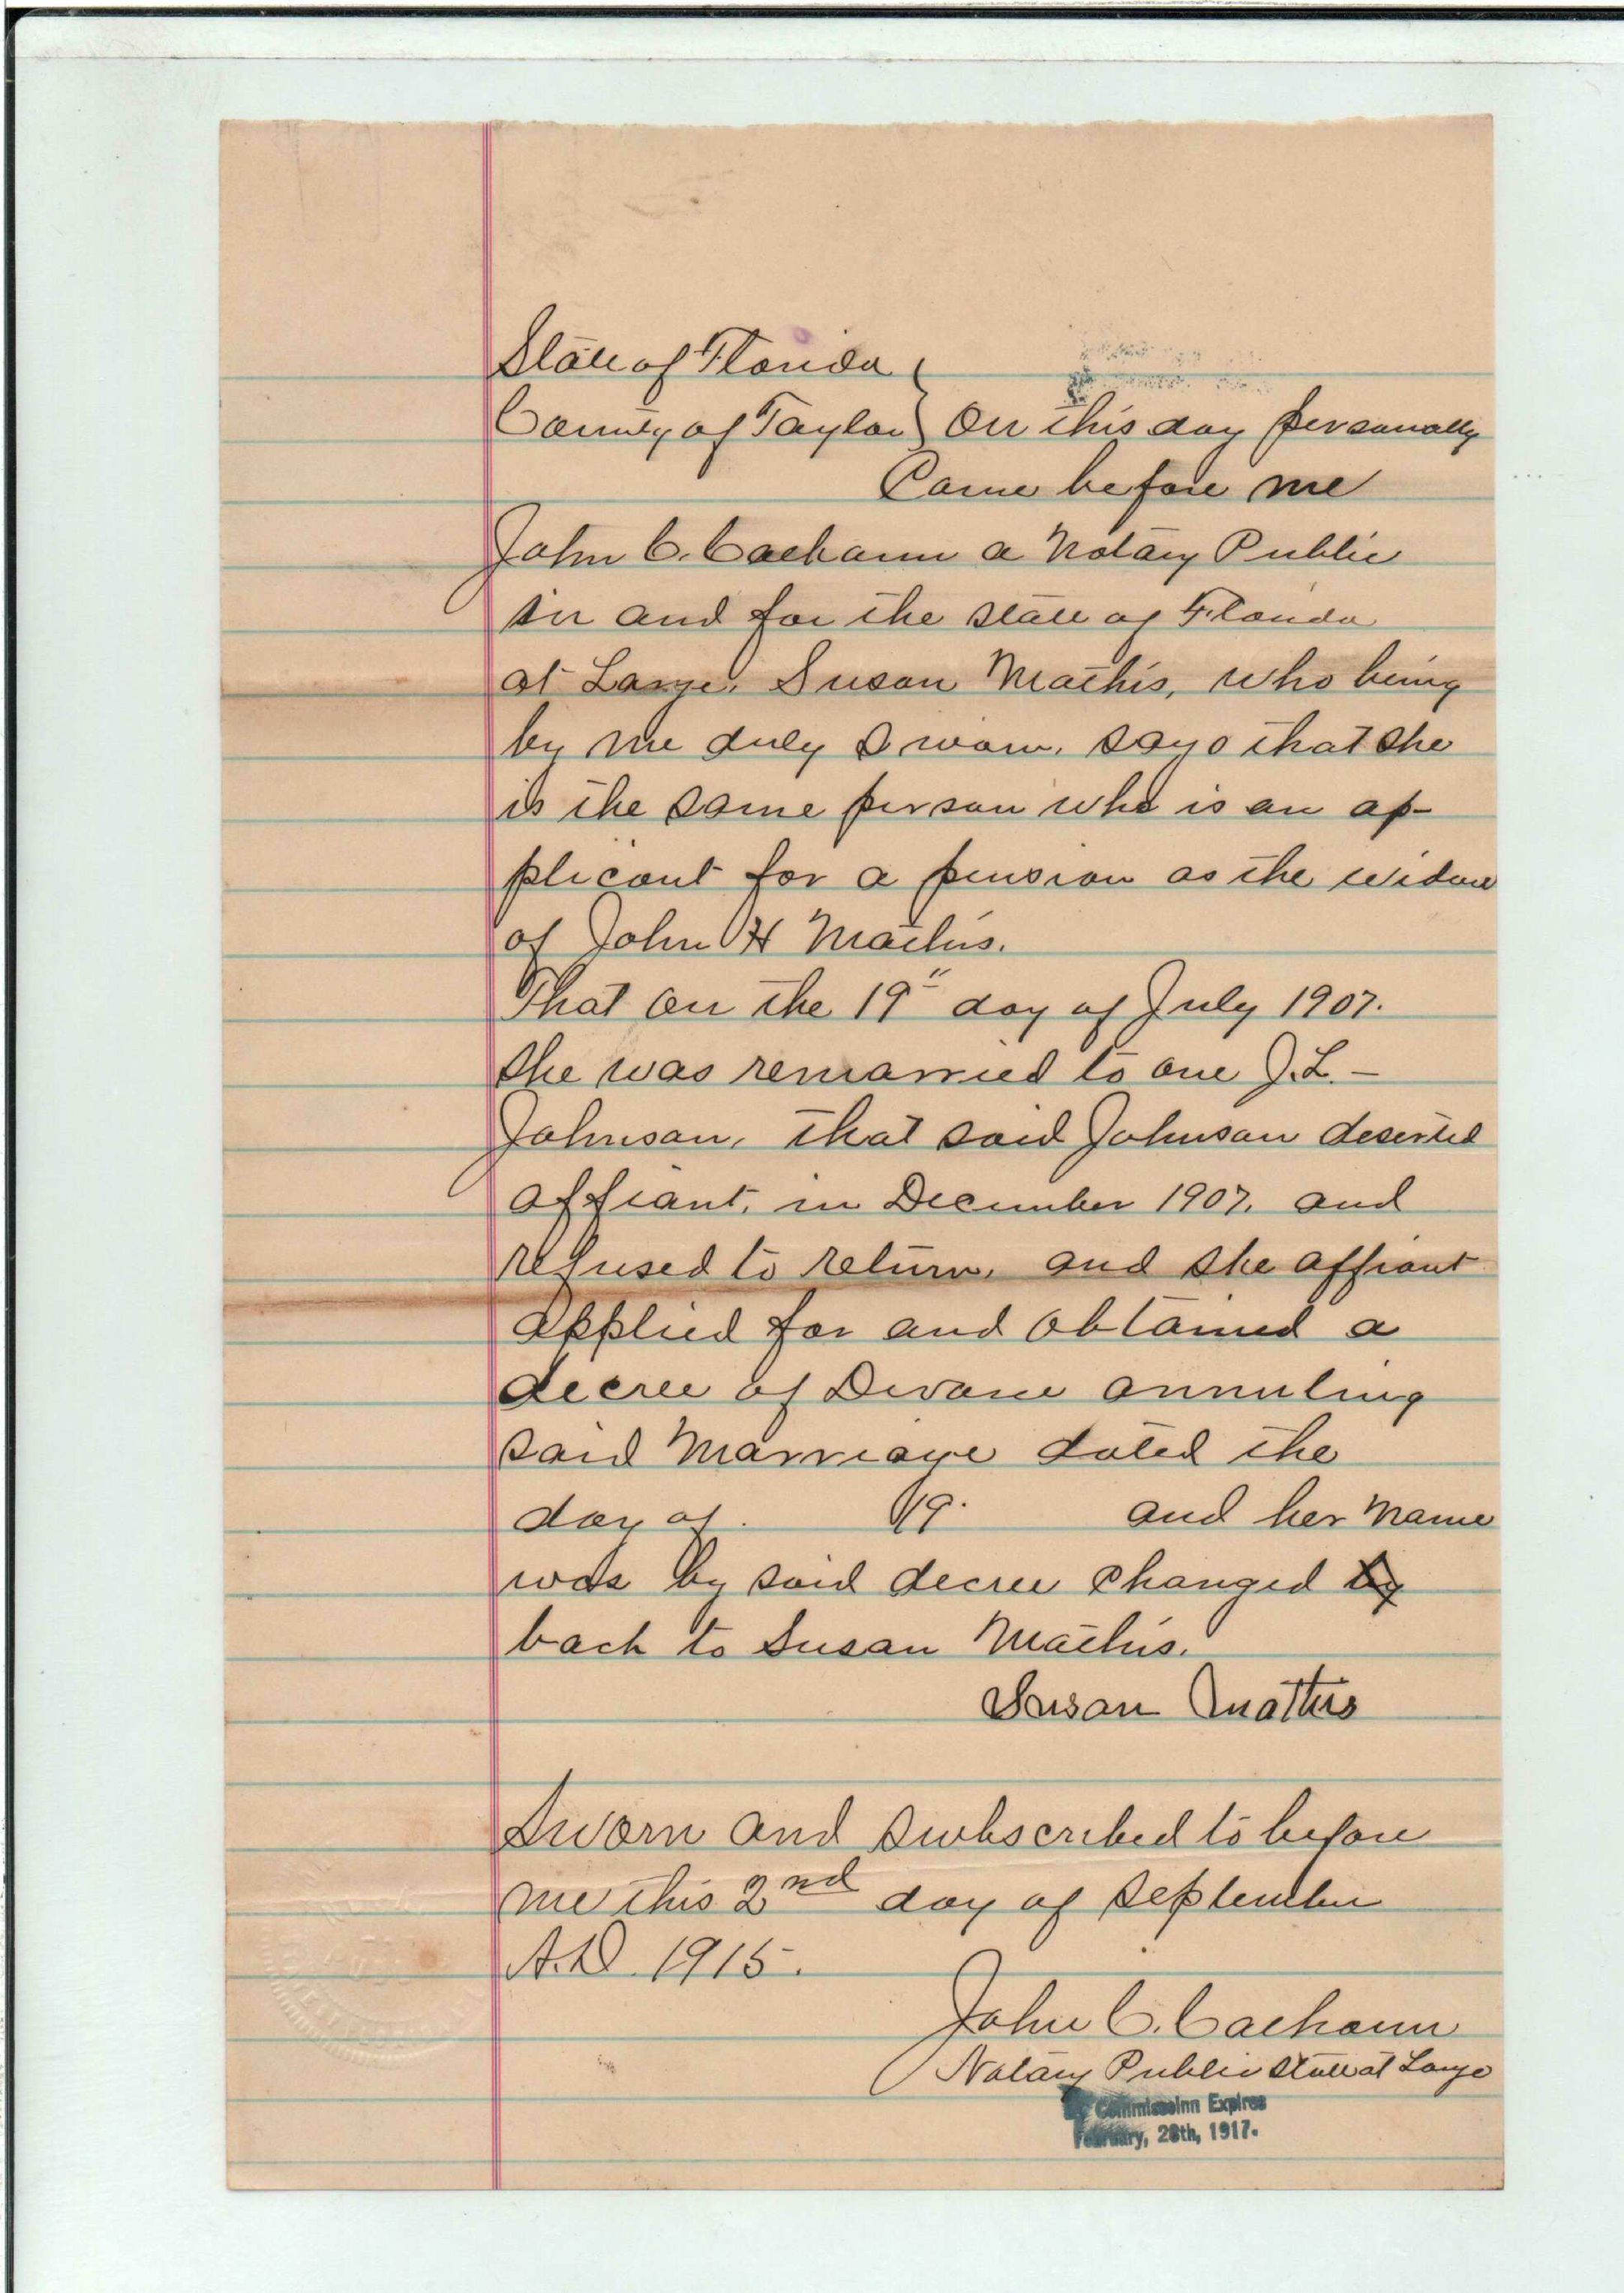 State of Florida
County of Taylor } On this day personally
Came before me
John C. Calhoun a Notary Public
in and for the state of Florida
at Large, Susan Mathis, who being
by me duly sworn, says that she
is the same person who is an ap-
plicant for a pension as the widow
of John H Mathis.
That on the 19" day of July 1907.
She was remarried to one J.L. -
Johnson, that said Johnson deserted
affiant, in December 1907, and
refused to return, and she affiant
applied for and obtained a
decree of Divorce annuling
said Marriage dated the
day of. 19. and her name
was by said decree changed by
back to Susan Mathis.
Susan Mathis
Sworn and subscribed to before
me this 2nd day of September
A.D. 1915.
John C. Calhoun
Notary Public State at Large
Commissoinn Expires
February, 28th, 1917.